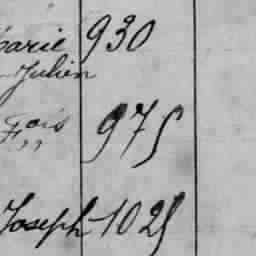 Marie 930
Julien
Fçois 975
" "
Joseph 1025